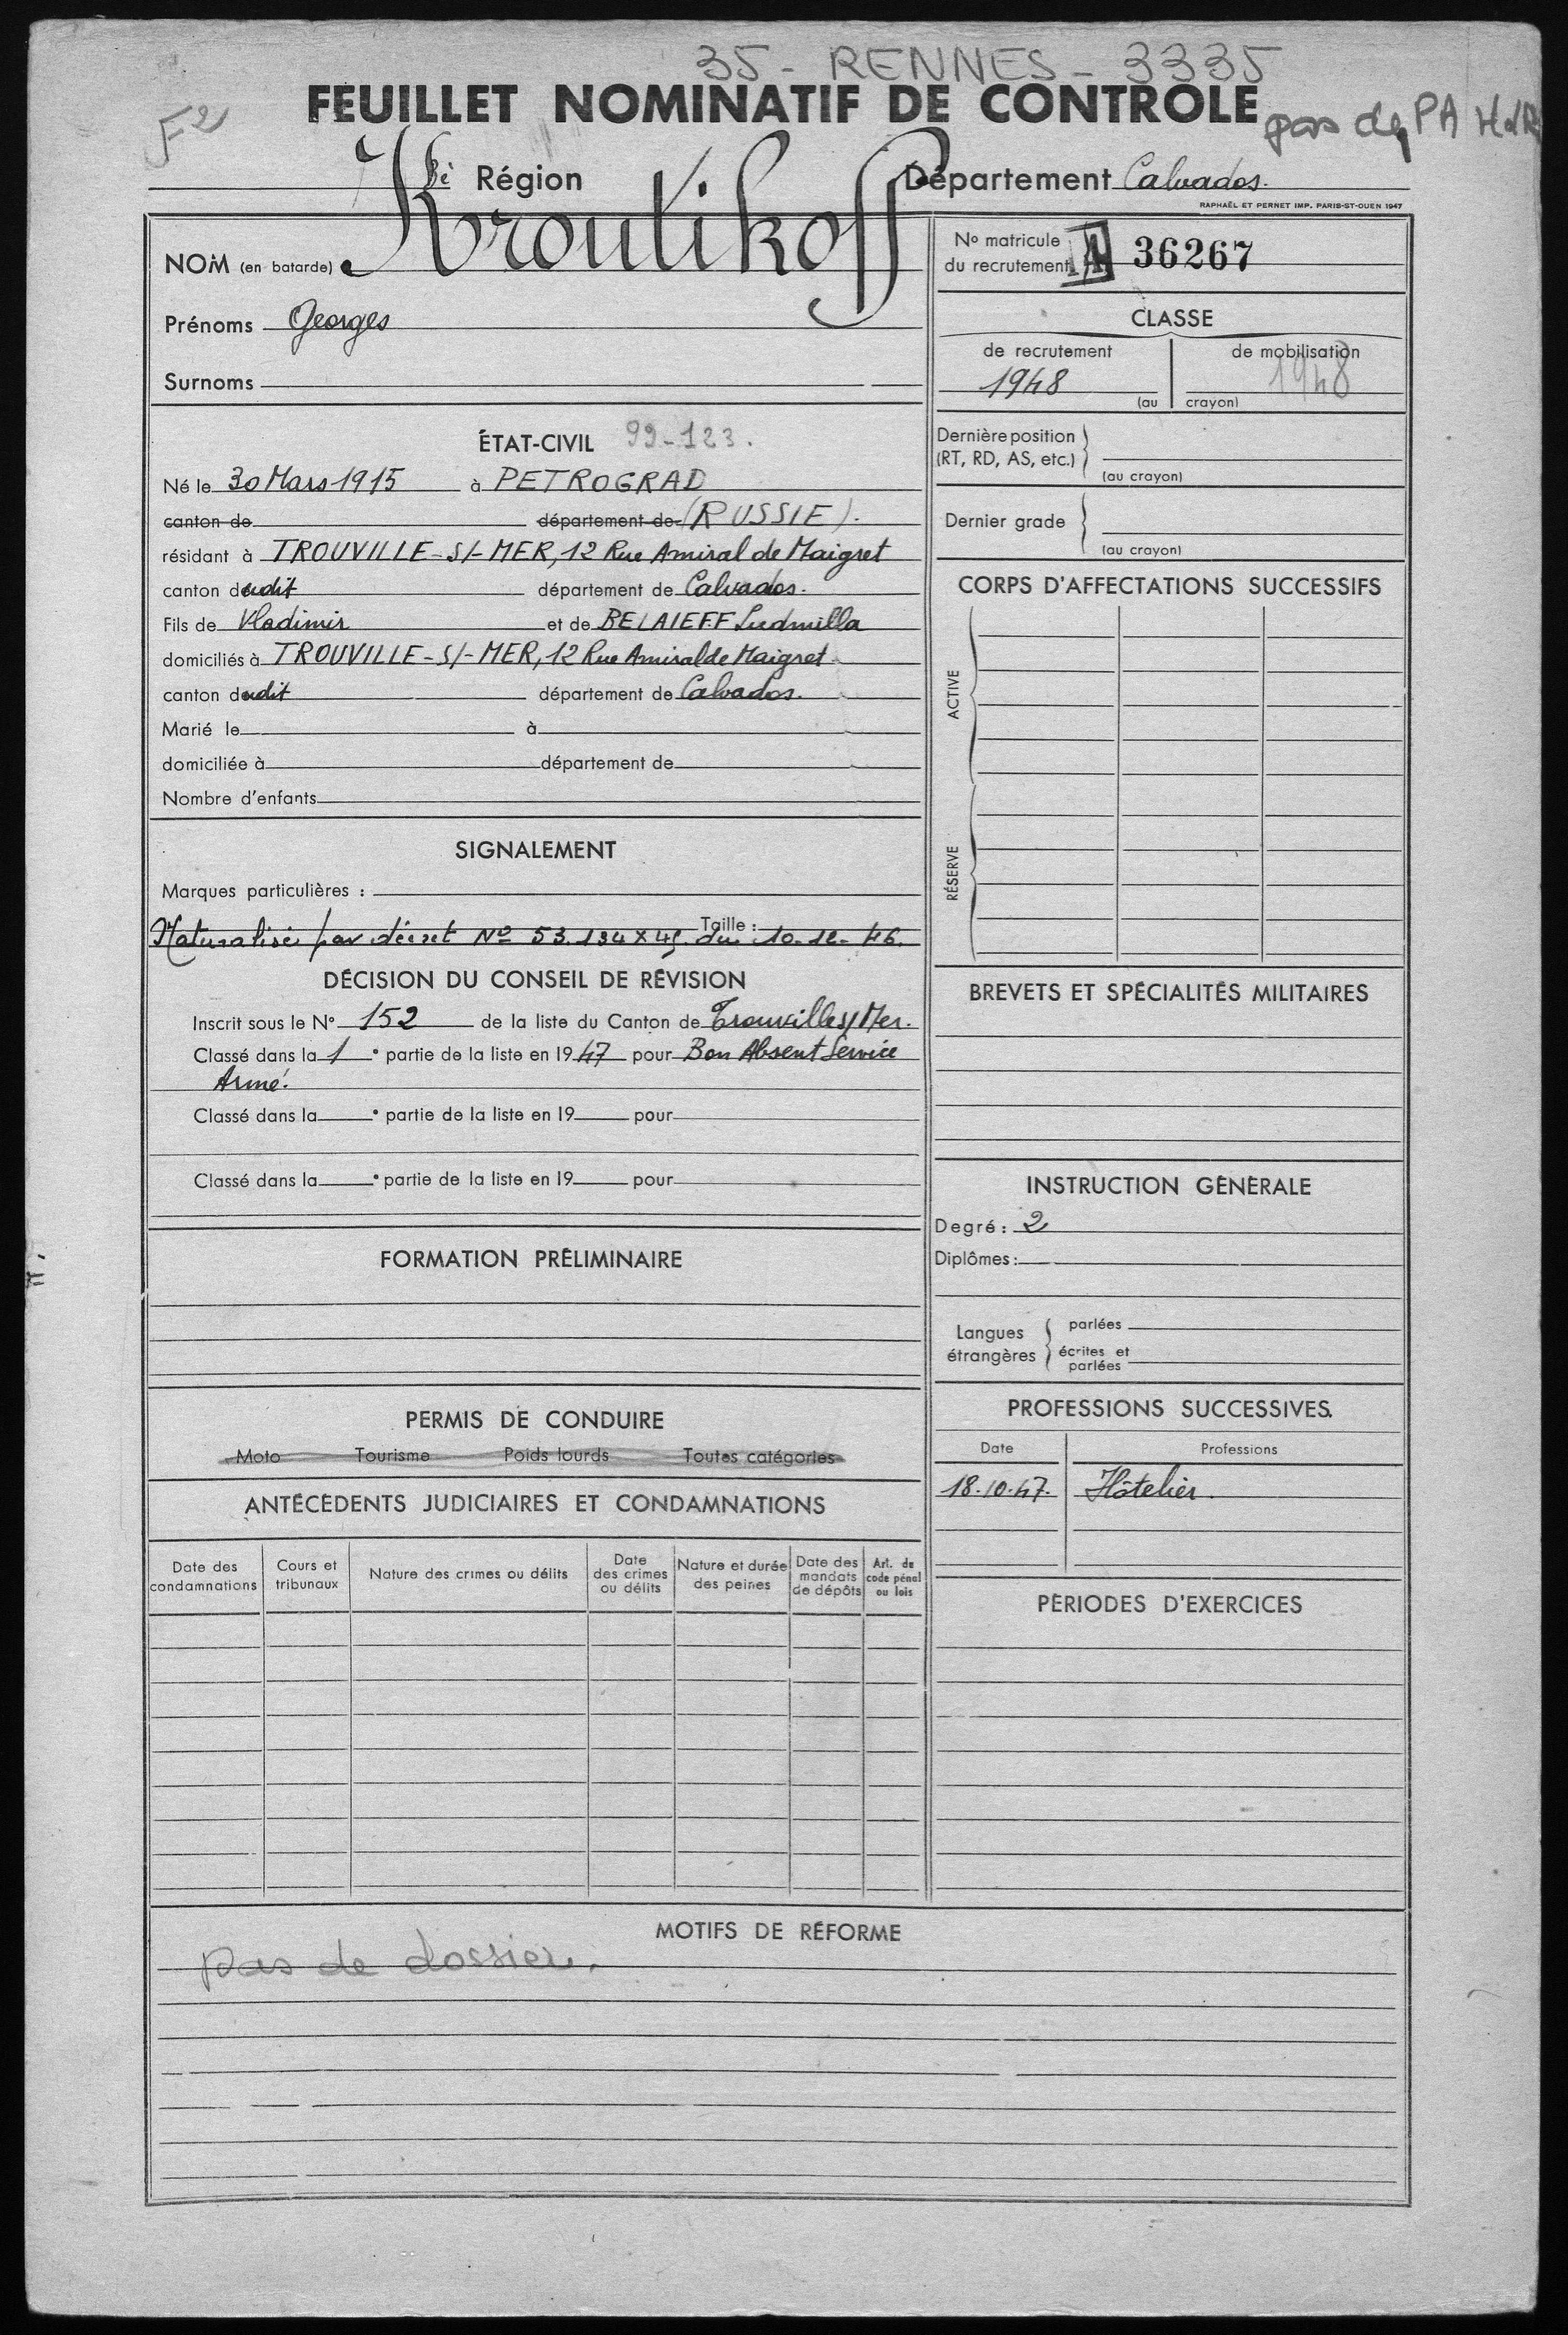 35 - RENNES - 3335
FEUILLET NOMINATIF DE CONTROLE
F2
pas de PA
3è Région
Département Calvados.
RAPHAËL ET PERNET IMP. PARIS-ST-OUEN 1947
NOM (en batarde) Kroutikoff
Prénoms Georges
Surnoms
ÉTAT-CIVIL 99-123.
Né le 30 Mars 1915 à PETROGRAD
canton de département de (RUSSIE).
résidant à TROUVILLE-S/-MER, 12 Rue Amiral de Maigret
canton dudit département de Calvados.
Fils de Vladimir et de BELAIEFF Ludmilla
domiciliés à TROUVILLE-S/-MER, 12 Rue Amiral de Maigret
canton dudit département de Calvados.
Marié le à
domiciliée à département de
Nombre d'enfants
SIGNALEMENT
Marques particulières :
Taille :
Naturalisé par décret No 53.134 X 45 du 10-12-46.
DÉCISION DU CONSEIL DE RÉVISION
Inscrit sous le No 152 de la liste du Canton de Trouville s/Mer.
Classé dans la 1 e partie de la liste en 1947 pour Bon Absent Service
Armé.
Classé dans la e partie de la liste en 19 pour
Classé dans la e partie de la liste en 19 pour
FORMATION PRÉLIMINAIRE
PERMIS DE CONDUIRE
Moto Tourisme Poids lourds Toutes catégories
ANTÉCÉDENTS JUDICIAIRES ET CONDAMNATIONS
Date des condamnations
Cours et tribunaux
Nature des crimes ou délits
Date des crimes ou délits
Nature et durée des peines
Date des mandats de dépôts
Art. de code pénal ou lois
No matricule
du recrutement A 36267
CLASSE
de recrutement de mobilisation
1948 1948
(au crayon)
Dernière position
(RT, RD, AS, etc.)
(au crayon)
Dernier grade
(au crayon)
CORPS D'AFFECTATIONS SUCCESSIFS
ACTIVE
RÉSERVE
BREVETS ET SPÉCIALITÉS MILITAIRES
INSTRUCTION GÉNÉRALE
Degré : 2
Diplômes :
Langues étrangères
parlées
écrites et parlées
PROFESSIONS SUCCESSIVES
Date Professions
18.10.47. Hôtelier.
PÉRIODES D'EXERCICES
MOTIFS DE RÉFORME
pas de dossier.